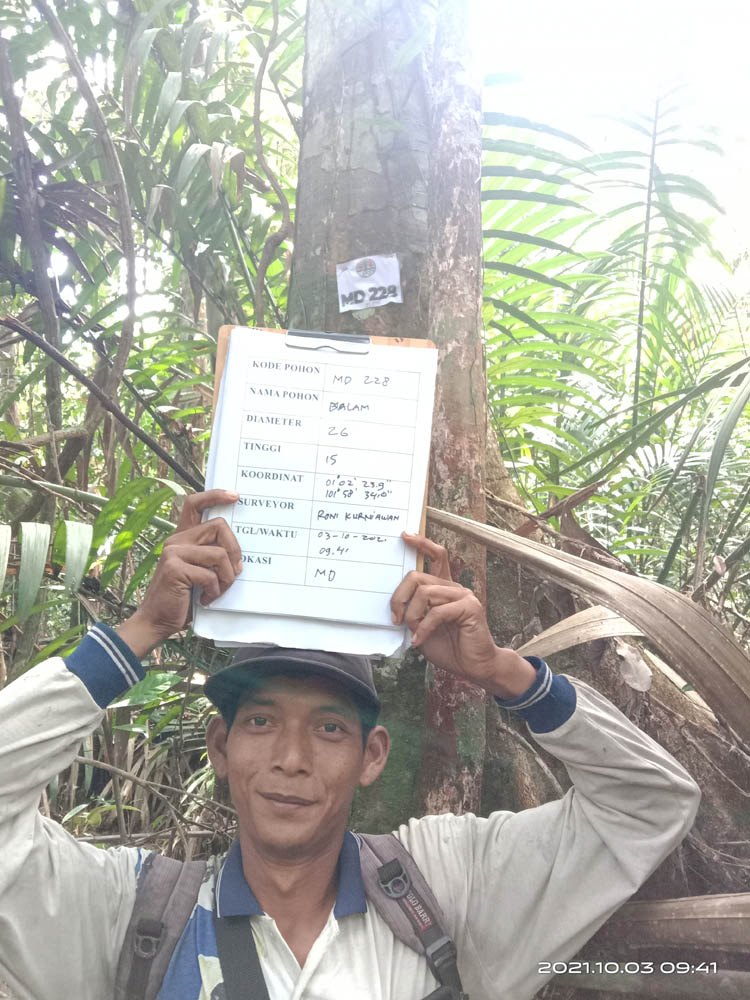 MD 228
KODE POHON MD 228
NAMA POHON BALAM
DIAMETER 26
TINGGI 15
KOORDINAT 01° 02' 29.9"
101° 58' 34.0"
SURVEYOR RONI KURNIAWAN
TGL/WAKTU 03-10-2021
09.41
OKASI MD
OLO BARRY
2021.10.03 09:41